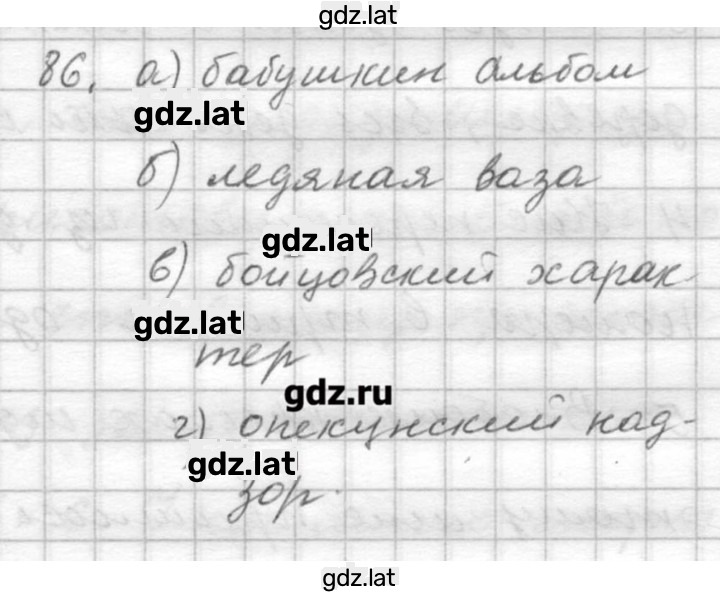 gdz.lat
86. а) бабушкин альбом
gdz.lat
б) ледяная ваза
gdz.lat
в) бойцовский харак
gdz.lat
тер
gdz.ru
г) опекунский над-
gdz.lat
зор.
gdz.lat